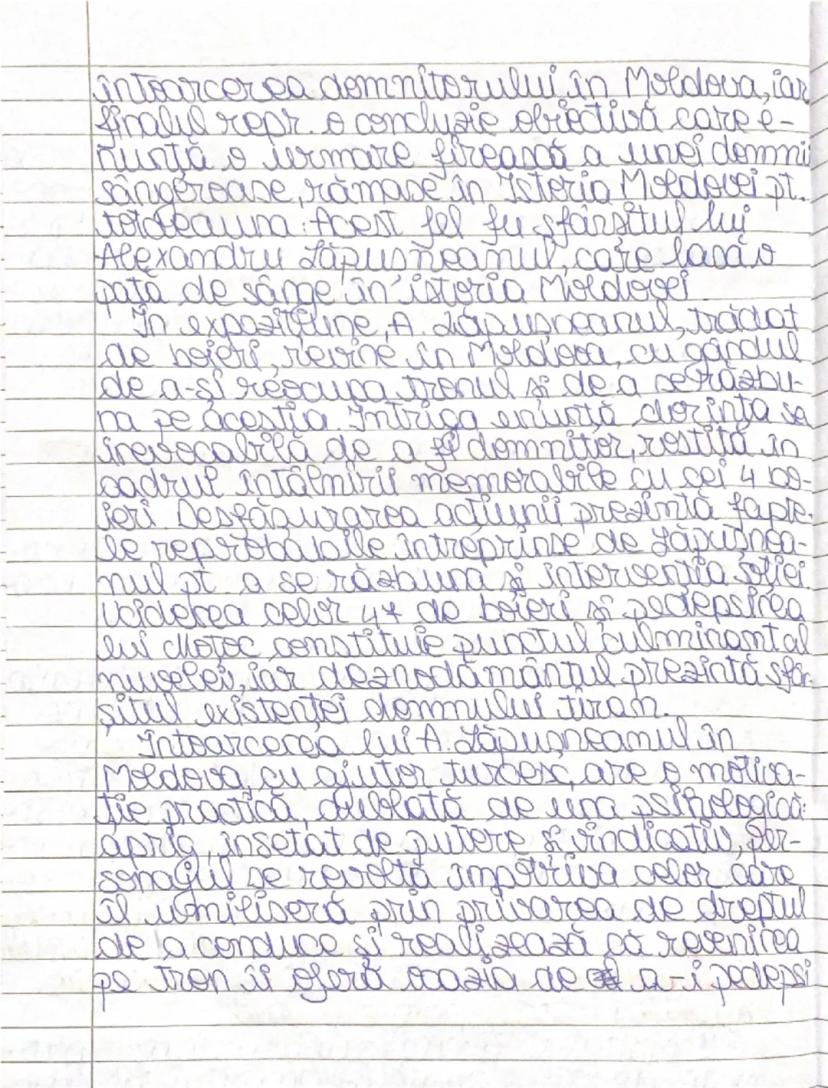 întoarcerea domnitorului în Moldova, iar
finalul repr. o concluzie obiectivă care e-
nunță o urmare firească a unei domnii
sângeroase, rămase în istoria Moldovei pt.
totdeauna: Acest fel fu sfârșitul lui
Alexandru Lăpușneanul, care lasă o
pată de sânge în istoria Moldovei.
În expozițiune, A. Lăpușneanul, trădat
de boieri, revine în Moldova, cu gândul
de a-și reocupa tronul și de a se răzbu-
na pe aceștia. Intriga enunță dorința sa
irevocabilă de a fi domnitor, rostită în
cadrul întâlnirii memorabile cu cei 4 bo-
ieri. Desfășurarea acțiunii prezintă fapte-
le reprobabile întreprinse de Lăpușnea-
nul pt a se răzbuna și intervenția soției
Uciderea celor 47 de boieri și pedepsirea
lui Moțoc constituie punctul culminant al
nuvelei, iar deznodământul prezintă sfâr
șitul existenței domnului tiran.
Întoarcerea lui A. Lăpușneanul în
Moldova, cu ajutor turcesc, are o motiva-
ție practică, dublată de una psihologică:
aprig, însetat de putere și vindicativ, per-
sonajul se revoltă împotriva celor care
îl umiliseră prin privarea de dreptul
de a conduce și realizează că revenirea
pe tron îi oferă ocazia de a-i pedepsi